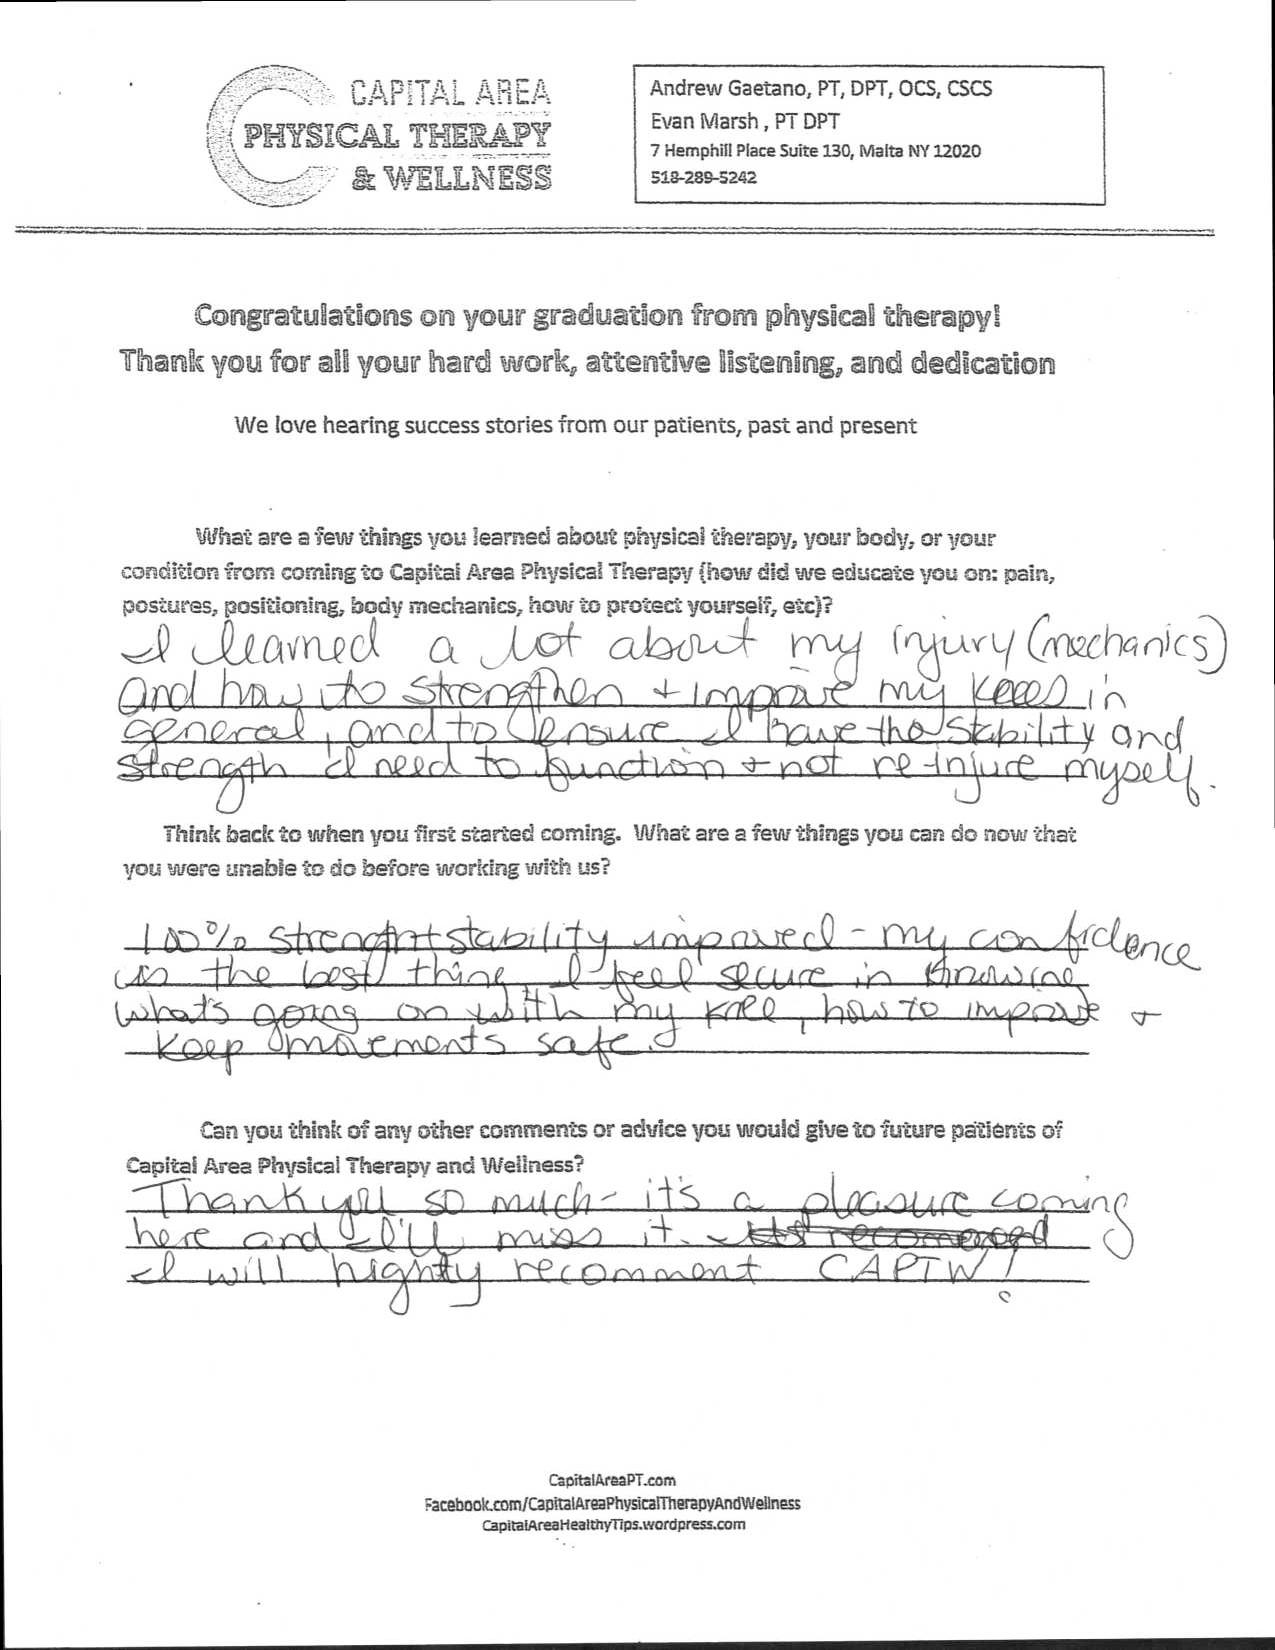 CAPITAL AREA
PHYSICAL THERAPY
& WELLNESS
Andrew Gaetano, PT, DPT, OCS, CSCS
Evan Marsh , PT DPT
7 Hemphill Place Suite 130, Malta NY 12020
518-289-5242
Congratulations on your graduation from physical therapy!
Thank you for all your hard work, attentive listening, and dedication
We love hearing success stories from our patients, past and present
What are a few things you learned about physical therapy, your body, or your
condition from coming to Capital Area Physical Therapy (how did we educate you on: pain,
postures, positioning, body mechanics, how to protect yourself, etc)?
I learned a lot about my injury (mechanics)
and how to strengthen + improve my knees in
general, and to ensure I have the stability and
strength I need to function + not re-injure myself.
Think back to when you first started coming. What are a few things you can do now that
you were unable to do before working with us?
100% strength + stability improved - my confidence
is the best thing. I feel secure in knowing
what's going on with my knee, how to improve +
keep movements safe.
Can you think of any other comments or advice you would give to future patients of
Capital Area Physical Therapy and Wellness?
Thank you so much - it's a pleasure coming
here and I'll miss it.
I will highly recomment CAPTW!
CapitalAreaPT.com
Facebook.com/CapitalAreaPhysicalTherapyAndWellness
CapitalAreaHealthyTips.wordpress.com